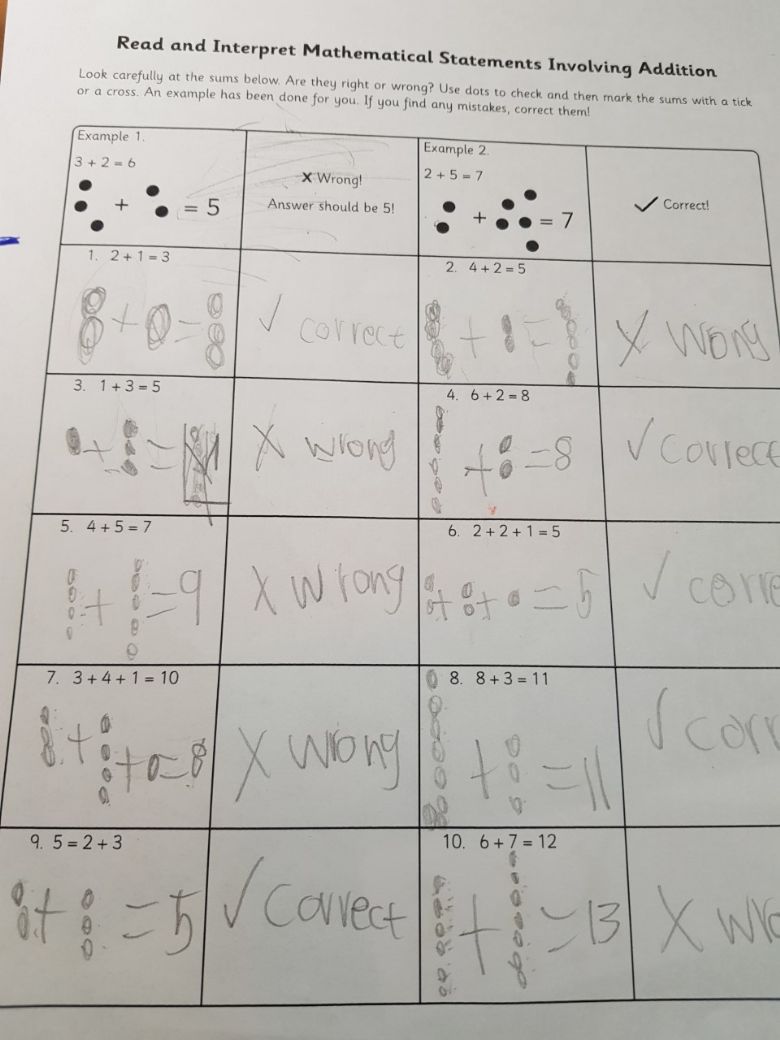 Read and Interpret Mathematical Statements Involving Addition
Look carefully at the sums below. Are they right or wrong? Use dots to check and then mark the sums with a tick
or a cross. An example has been done for you. If you find any mistakes, correct them!
Example 1.
3 + 2 = 6
+ = 5
X Wrong!
Answer should be 5!
Example 2.
2 + 5 = 7
+ = 7
✓ Correct!
1. 2 + 1 = 3
+ =
✓ correct
2. 4 + 2 = 5
+ =
X wrong
3. 1 + 3 = 5
+ =
X wrong
4. 6 + 2 = 8
+ = 8
✓ correct
5. 4 + 5 = 7
+ = 9
X wrong
6. 2 + 2 + 1 = 5
+ + = 5
✓ corre
7. 3 + 4 + 1 = 10
+ + = 8
X wrong
8. 8 + 3 = 11
+ = 11
✓ corr
9. 5 = 2 + 3
+ = 5
✓ correct
10. 6 + 7 = 12
+ = 13
X wro